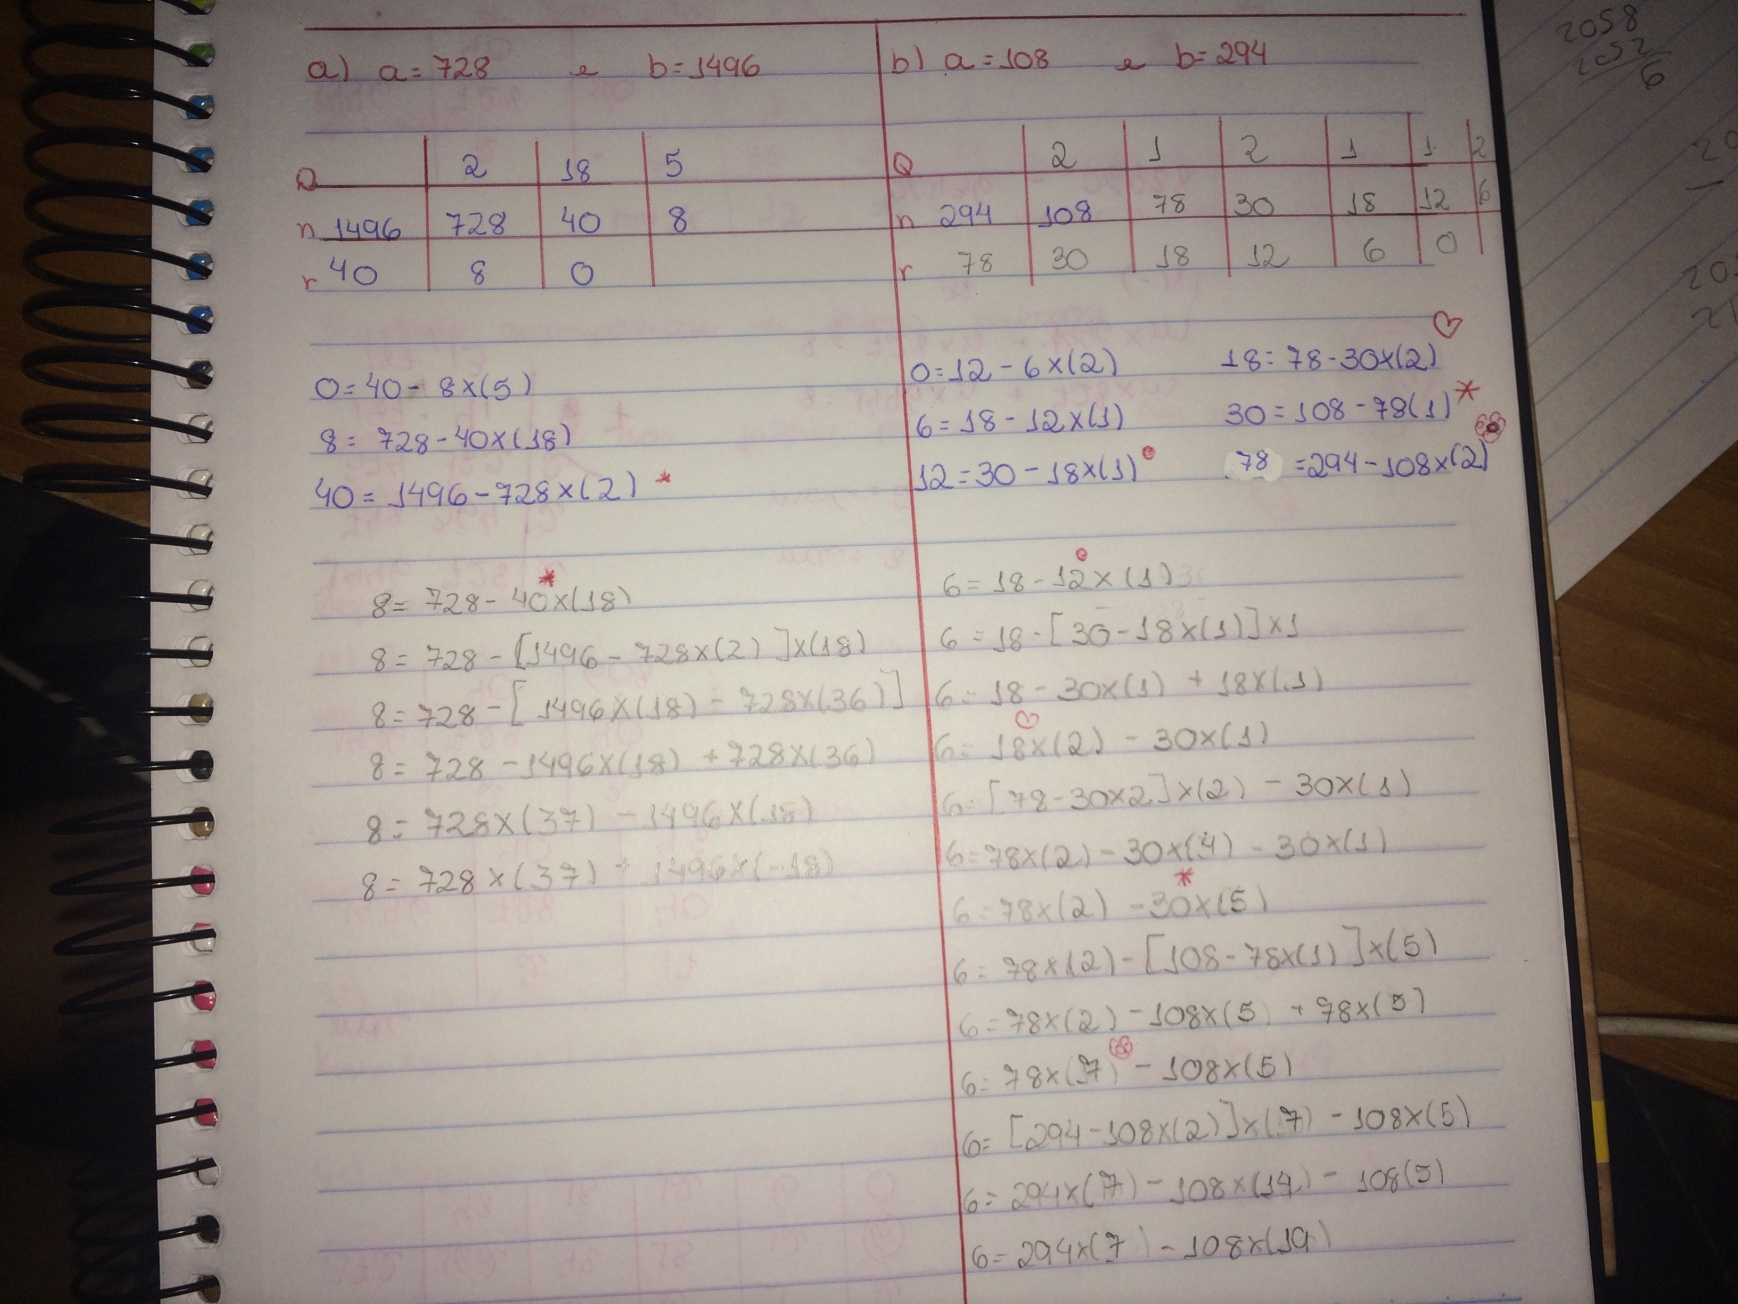 a) a=728 e b=1496
Q 2 18 5
n 1496 728 40 8
r 40 8 0
0=40-8x(5)
8=728-40x(18)
40=1496-728x(2) *
8=728-40*x(18)
8=728-[1496-728x(2)]x(18)
8=728-[1496x(18)-728x(36)]
8=728-1496x(18)+728x(36)
8=728x(37)-1496x(18)
8=728x(37)+1496x(-18)
b) a=108 e b=294
Q 2 1 2 1 1 2
n 294 108 78 30 18 12 6
r 78 30 18 12 6 0
0=12-6x(2) 18=78-30x(2)♡
6=18-12x(1) 30=108-78(1)*
12=30-18x(1) 78=294-108x(2)
6=18-12x(1)
6=18-[30-18x(1)]x1
6=18-30x(1)+18x(1)
6=18x(2)-30x(1)
6=[78-30x2]x(2)-30x(1)
6=78x(2)-30x(4)-30x(1)
6=78x(2)-30*x(5)
6=78x(2)-[108-78x(1)]x(5)
6=78x(2)-108x(5)+78x(5)
6=78x(7)-108x(5)
6=[294-108x(2)]x(7)-108x(5)
6=294x(7)-108x(14)-108(5)
6=294x(7)-108x(19)
2058
2052
6